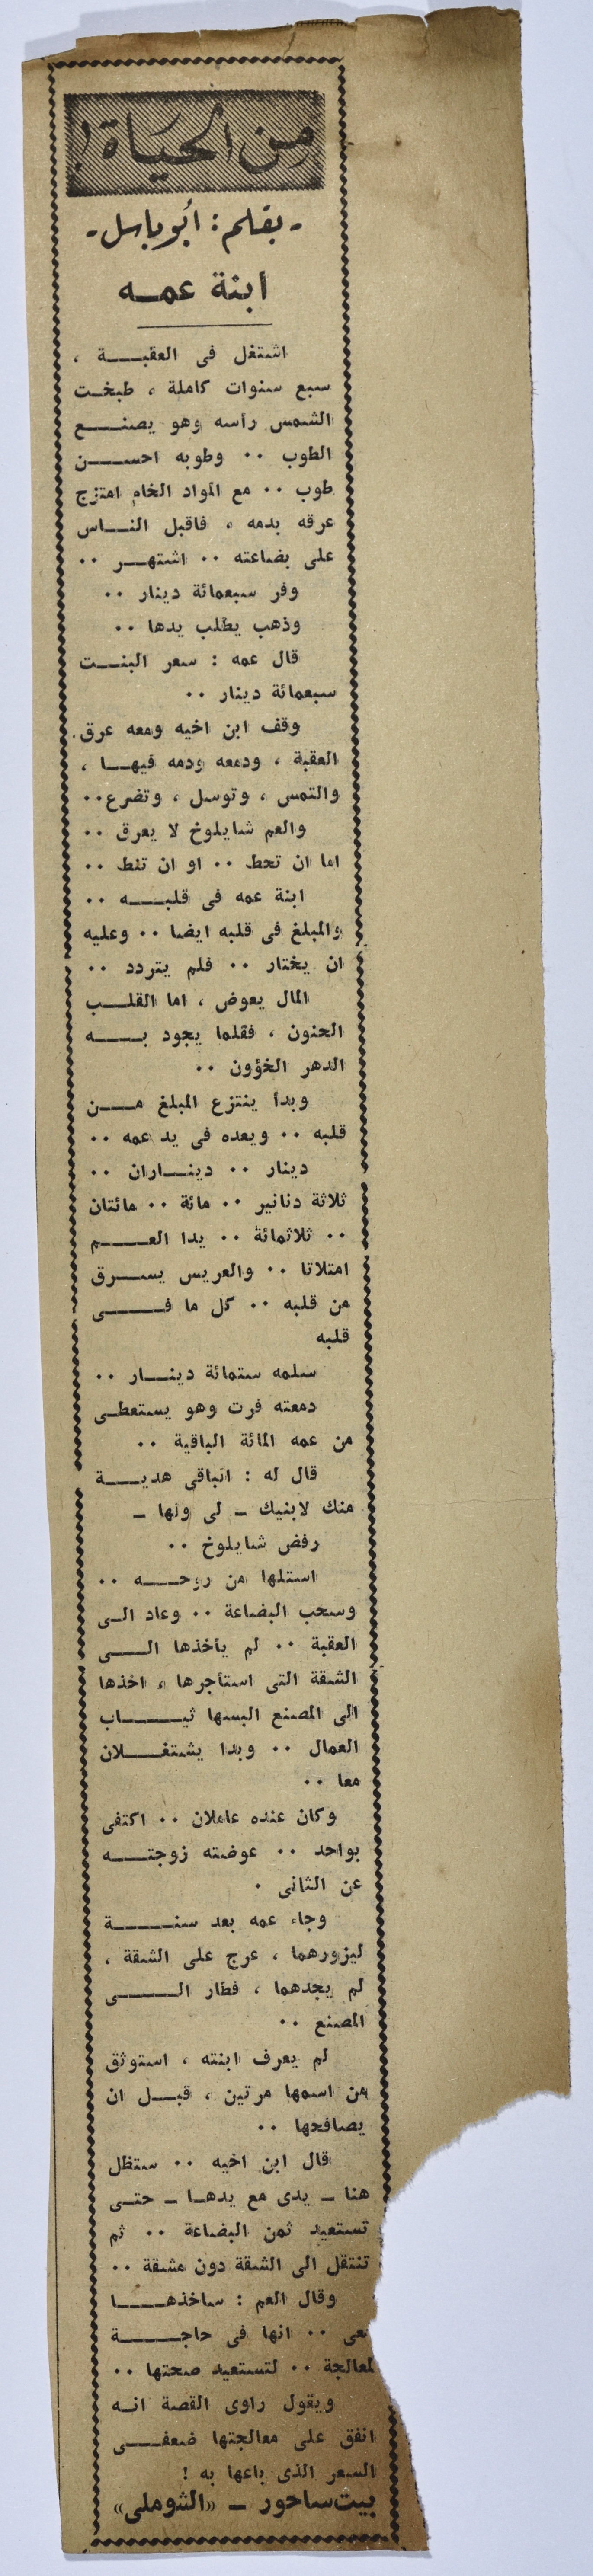 من الحياة !
- بقلم : أبو باسل -
ابنة عمـــه
اشتغل فى العقبـــــة ،
سبع سنوات كاملة ، طبخـت
الشمس رأسه وهو يصنـــع
الطوب ٠٠ وطوبه احســــن
طوب ٠٠ مع المواد الخام امتزج
عرقه بدمه ، فاقبل النــاس
على بضاعته ٠٠ اشتهــر ٠٠
وفر سبعمائة دينار ٠٠
وذهب يطلب يدها ٠٠
قال عمه : سعر البنــت
سبعمائة دينار ٠٠
وقف ابن اخيه ومعه عرق
العقبة ، ودمعه ودمه فيهـــا ،
والتمس ، وتوسل ، وتضرع٠٠
والعم شايلوخ لا يعرق ٠٠
اما ان تحط ٠٠ او ان تنط ٠٠
ابنة عمه فى قلبـــــه ٠٠
والمبلغ فى قلبه ايضا ٠٠ وعليه
ان يختار ٠٠ فلم يتردد ٠٠
المال يعوض ، اما القلــب
الحنون ، فقلما يجود بـــــه
الدهر الخؤون ٠٠
وبدأ ينتزع المبلغ مــــن
قلبه ٠٠ ويعده فى يد عمه ٠٠
دينار ٠٠ دينــاران ٠٠
ثلاثة دنانير ٠٠ مائة ٠٠ مائتان
٠٠ ثلاثمائة ٠٠ يدا العـــــم
امتلاتا ٠٠ والعريس يســـرق
من قلبه ٠٠ كل ما فــــــى
قلبه
سلمه ستمائة دينـــار ٠٠
دمعته فرت وهو يستعطـى
من عمه المائة الباقية ٠٠
قال له : الباقى هديـــــة
منك لابنيك ـ لى ولها ـ
رفض شايلوخ ٠٠
استلها من روحـــــه ٠٠
وسحب البضاعة ٠٠ وعاد الـى
العقبة ٠٠ لم يأخذها الــــى
الشقة التى استأجرها ، اخذها
الى المصنع البسها ثيــــــاب
العمال ٠٠ وبدا يشتغـــلان
معا ٠٠
وكان عنده عاملان ٠٠ اكتفى
بواحد ٠٠ عوضته زوجتــــه
عن الثانى ٠
وجاء عمه بعد سنــــــة
ليزورهما ، عرج على الشقة ،
لم يجدهما ، فطار الــــــى
المصنع ٠٠
لم يعرف ابنته ، استوثق
من اسمها مرتين ، قبــل ان
يصافحها ٠٠
قال ابن اخيه ٠٠ ستظل
هنا ـ يدى مع يدهــا ـ حتــى
تستعيد ثمن البضاعة ٠٠ ثم
تنتقل الى الشقة دون مشقة ٠٠
وقال العم : ساخذهـــــا
معى ٠٠ انها فى حاجــــــة
لمعالجة ٠٠ لتستعيد صحتها ٠٠
ويقول راوى القصة انــه
انفق على معالجتها ضعفــــى
السعر الذى باعها به !
بيت ساحور ـ «الشوملى»